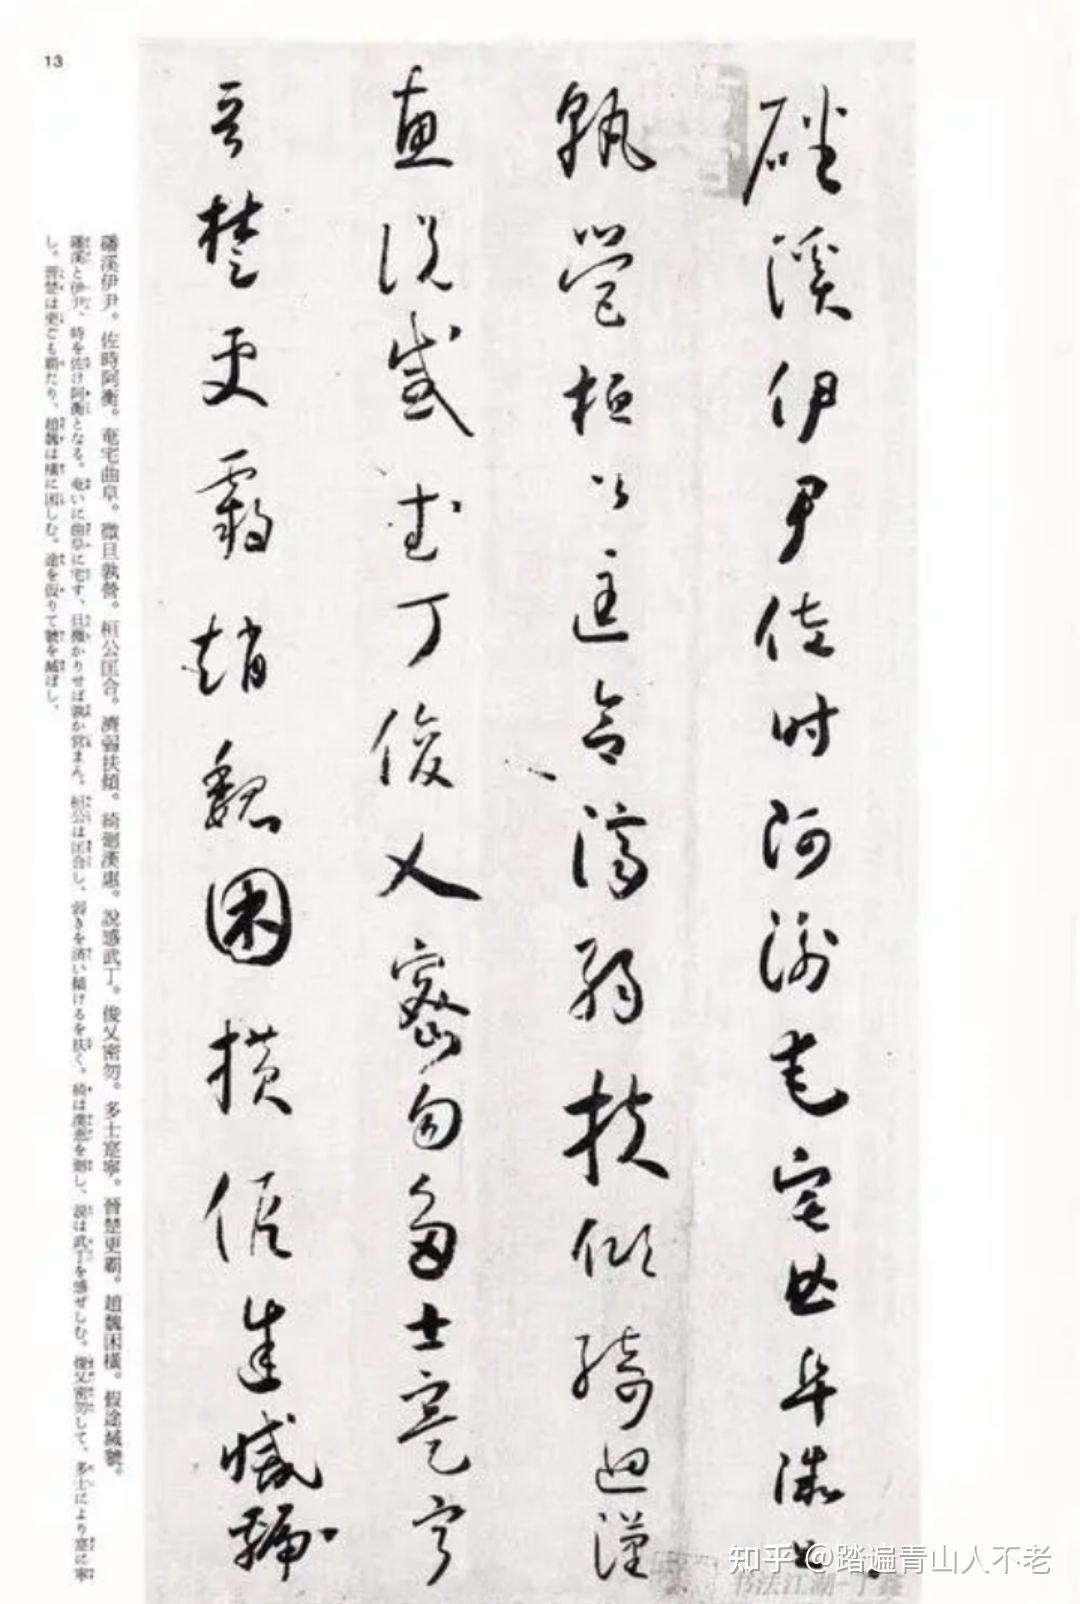 磻溪伊尹佐時阿衡奄宅曲阜微旦
孰營桓公匡合濟弱扶傾綺迴漢
惠說感武丁俊乂密勿多士寔寧
晉楚更霸趙魏困橫假途滅虢
13
磻溪伊尹。佐時阿衡。奄宅曲阜。微旦孰營。桓公匡合。濟弱扶傾。綺廻漢惠。說感武丁。俊乂密勿。多士寔寧。晉楚更覇。趙魏困橫。假途滅虢。
磻渓と伊尹、時を佐け阿衡となる。奄いに曲阜に宅す、旦微かりせば孰か営まん。桓公は匡合し、弱きを済い傾けるを扶く。綺は漢恵を廻し、説は武丁を感ぜしむ。俊乂密勿して、多士により寔に寧
し。晋楚は更ごも覇たり、趙魏は横に困しむ。途を仮りて虢を滅ぼし、
知乎 @踏遍青山人不老
书法江湖-丁鑫